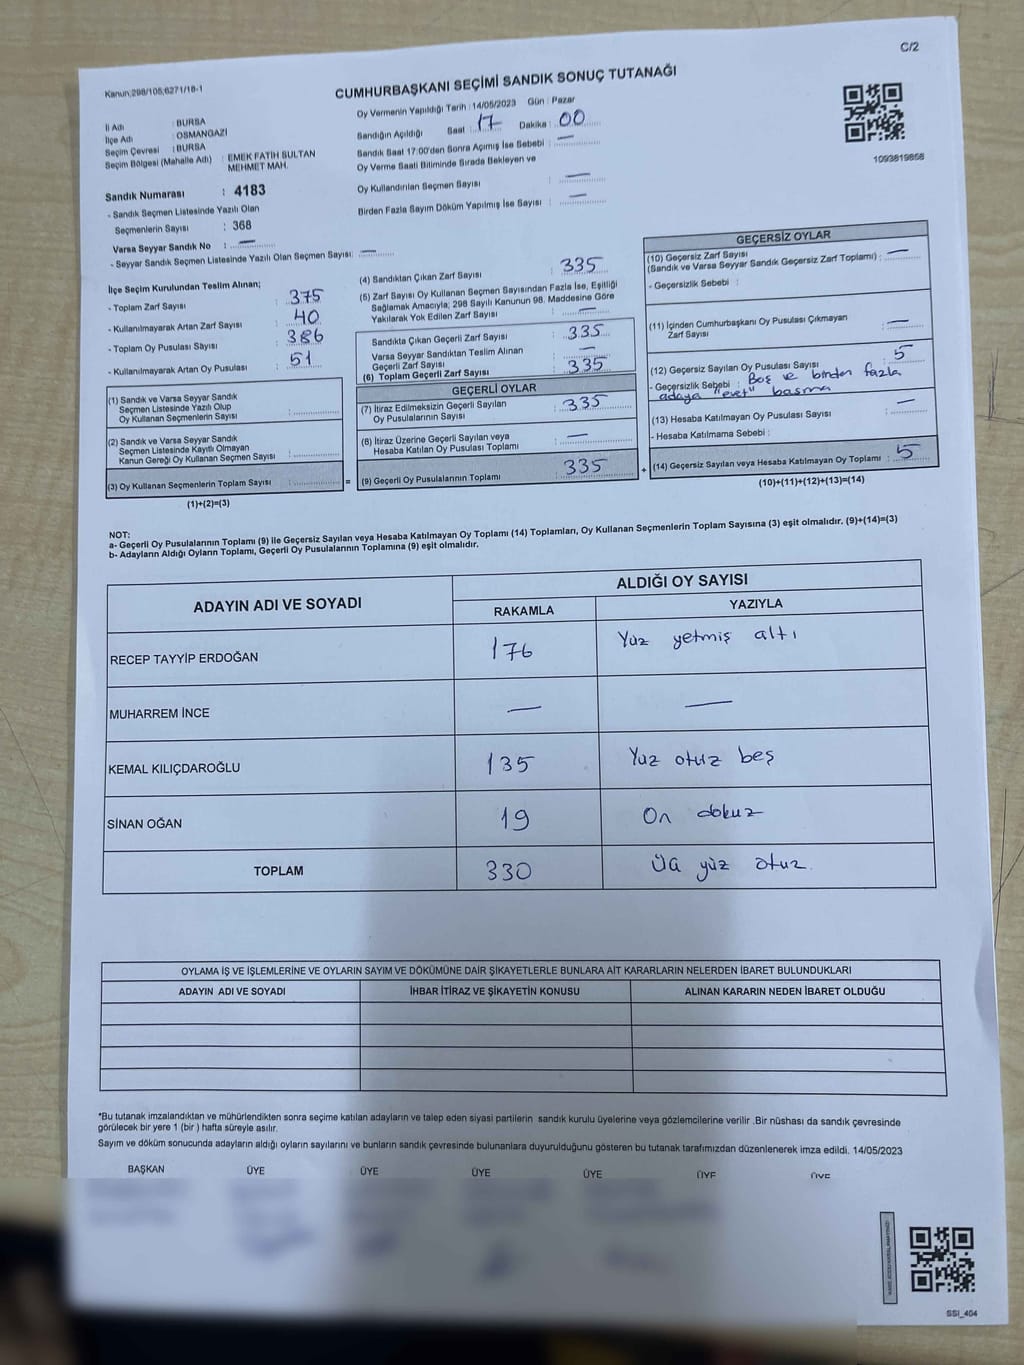 C/2
Kanun;298/105;6271/18-1
CUMHURBAŞKANI SEÇİMİ SANDIK SONUÇ TUTANAĞI
Oy Vermenin Yapıldığı Tarih : 14/05/2023 Gün : Pazar
Sandığın Açıldığı Saat : 17 Dakika : 00
Sandık Saat 17:00'den Sonra Açımış İse Sebebi : —
Oy Verme Saati Bitiminde Sırada Bekleyen ve
Oy Kullandırılan Seçmen Sayısı : —
Birden Fazla Sayım Döküm Yapılmış İse Sayısı : —
1093819858
İl Adı : BURSA
İlçe Adı : OSMANGAZİ
Seçim Çevresi : BURSA
Seçim Bölgesi (Mahalle Adı) : EMEK FATİH SULTAN
MEHMET MAH.
Sandık Numarası : 4183
- Sandık Seçmen Listesinde Yazılı Olan
Seçmenlerin Sayısı : 368
Varsa Seyyar Sandık No : —
- Seyyar Sandık Seçmen Listesinde Yazılı Olan Seçmen Sayısı: —
İlçe Seçim Kurulundan Teslim Alınan;
- Toplam Zarf Sayısı : 375
- Kullanılmayarak Artan Zarf Sayısı : 40
- Toplam Oy Pusulası Sayısı : 386
- Kullanılmayarak Artan Oy Pusulası : 51
(1) Sandık ve Varsa Seyyar Sandık
Seçmen Listesinde Yazılı Olup
Oy Kullanan Seçmenlerin Sayısı :
(2) Sandık ve Varsa Seyyar Sandık
Seçmen Listesinde Kayıtlı Olmayan
Kanun Gereği Oy Kullanan Seçmen Sayısı :
(3) Oy Kullanan Seçmenlerin Toplam Sayısı :
(1)+(2)=(3)
=
(4) Sandıktan Çıkan Zarf Sayısı : 335
(5) Zarf Sayısı Oy Kullanan Seçmen Sayısından Fazla İse, Eşitliği
Sağlamak Amacıyla; 298 Sayılı Kanunun 98. Maddesine Göre
Yakılarak Yok Edilen Zarf Sayısı : —
Sandıkta Çıkan Geçerli Zarf Sayısı : 335
Varsa Seyyar Sandıktan Teslim Alınan
Geçerli Zarf Sayısı : —
(6) Toplam Geçerli Zarf Sayısı : 335
GEÇERLİ OYLAR
(7) İtiraz Edilmeksizin Geçerli Sayılan
Oy Pusulalarının Sayısı : 335
(8) İtiraz Üzerine Geçerli Sayılan veya
Hesaba Katılan Oy Pusulası Toplamı : —
(9) Geçerli Oy Pusulalarının Toplamı : 335
+
GEÇERSİZ OYLAR
(10) Geçersiz Zarf Sayısı
(Sandık ve Varsa Seyyar Sandık Geçersiz Zarf Toplamı) : —
- Geçersizlik Sebebi :
(11) İçinden Cumhurbaşkanı Oy Pusulası Çıkmayan
Zarf Sayısı : —
(12) Geçersiz Sayılan Oy Pusulası Sayısı : 5
- Geçersizlik Sebebi : Boş ve birden fazla
adaya "evet" basma
(13) Hesaba Katılmayan Oy Pusulası Sayısı : —
- Hesaba Katılmama Sebebi :
(14) Geçersiz Sayılan veya Hesaba Katılmayan Oy Toplamı : 5
(10)+(11)+(12)+(13)=(14)
NOT:
a- Geçerli Oy Pusulalarının Toplamı (9) ile Geçersiz Sayılan veya Hesaba Katılmayan Oy Toplamı (14) Toplamları, Oy Kullanan Seçmenlerin Toplam Sayısına (3) eşit olmalıdır. (9)+(14)=(3)
b- Adayların Aldığı Oyların Toplamı, Geçerli Oy Pusulalarının Toplamına (9) eşit olmalıdır.
ADAYIN ADI VE SOYADI
ALDIĞI OY SAYISI
RAKAMLA YAZIYLA
RECEP TAYYİP ERDOĞAN 176 Yüz yetmiş altı
MUHARREM İNCE — —
KEMAL KILIÇDAROĞLU 135 Yüz otuz beş
SİNAN OĞAN 19 On dokuz
TOPLAM 330 Üç yüz otuz
OYLAMA İŞ VE İŞLEMLERİNE VE OYLARIN SAYIM VE DÖKÜMÜNE DAİR ŞİKAYETLERLE BUNLARA AİT KARARLARIN NELERDEN İBARET BULUNDUKLARI
ADAYIN ADI VE SOYADI İHBAR İTİRAZ VE ŞİKAYETİN KONUSU ALINAN KARARIN NEDEN İBARET OLDUĞU
*Bu tutanak imzalandıktan ve mühürlendikten sonra seçime katılan adayların ve talep eden siyasi partilerin sandık kurulu üyelerine veya gözlemcilerine verilir .Bir nüshası da sandık çevresinde
görülecek bir yere 1 (bir ) hafta süreyle asılır.
Sayım ve döküm sonucunda adayların aldığı oyların sayılarını ve bunların sandık çevresinde bulunanlara duyurulduğunu gösteren bu tutanak tarafımızdan düzenlenerek imza edildi. 14/05/2023
BAŞKAN ÜYE ÜYE ÜYE ÜYE ÜYE ÜYE
SSİ_404